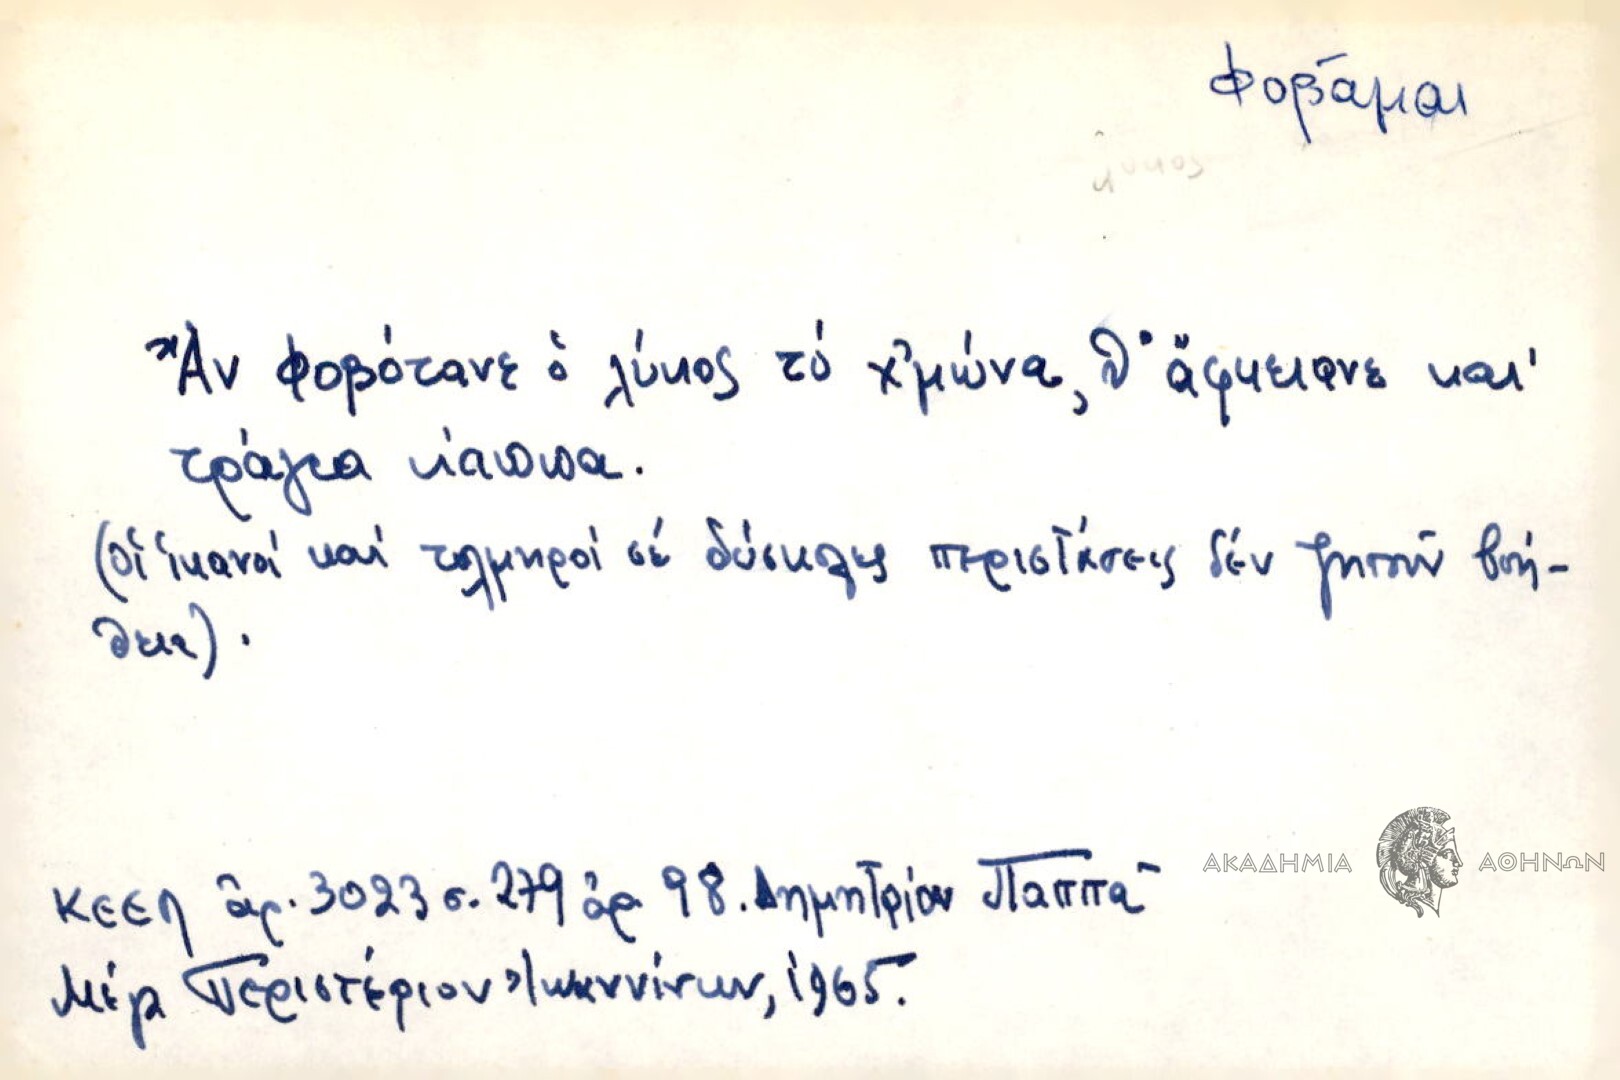 Φοβᾶμαι
λύκος
Ἂν φοβότανε ὁ λύκος τό χ'μώνα, θ' ἄφκειανε καί
τράγεια κάππα.
(οἱ ἱκανοί καί τολμηροί σέ δύσκολες περιστάσεις δέν ζητοῦν βοή-
θεια).
ΚΕΕΛ ἀρ. 3023 σ. 279 ἀρ. 98. Δημητρίου Παππᾶ
Μέγ Περιστέριον Ἰωαννίνων, 1965.
ΑΚΑΔΗΜΙΑ ΑΘΗΝΩΝ